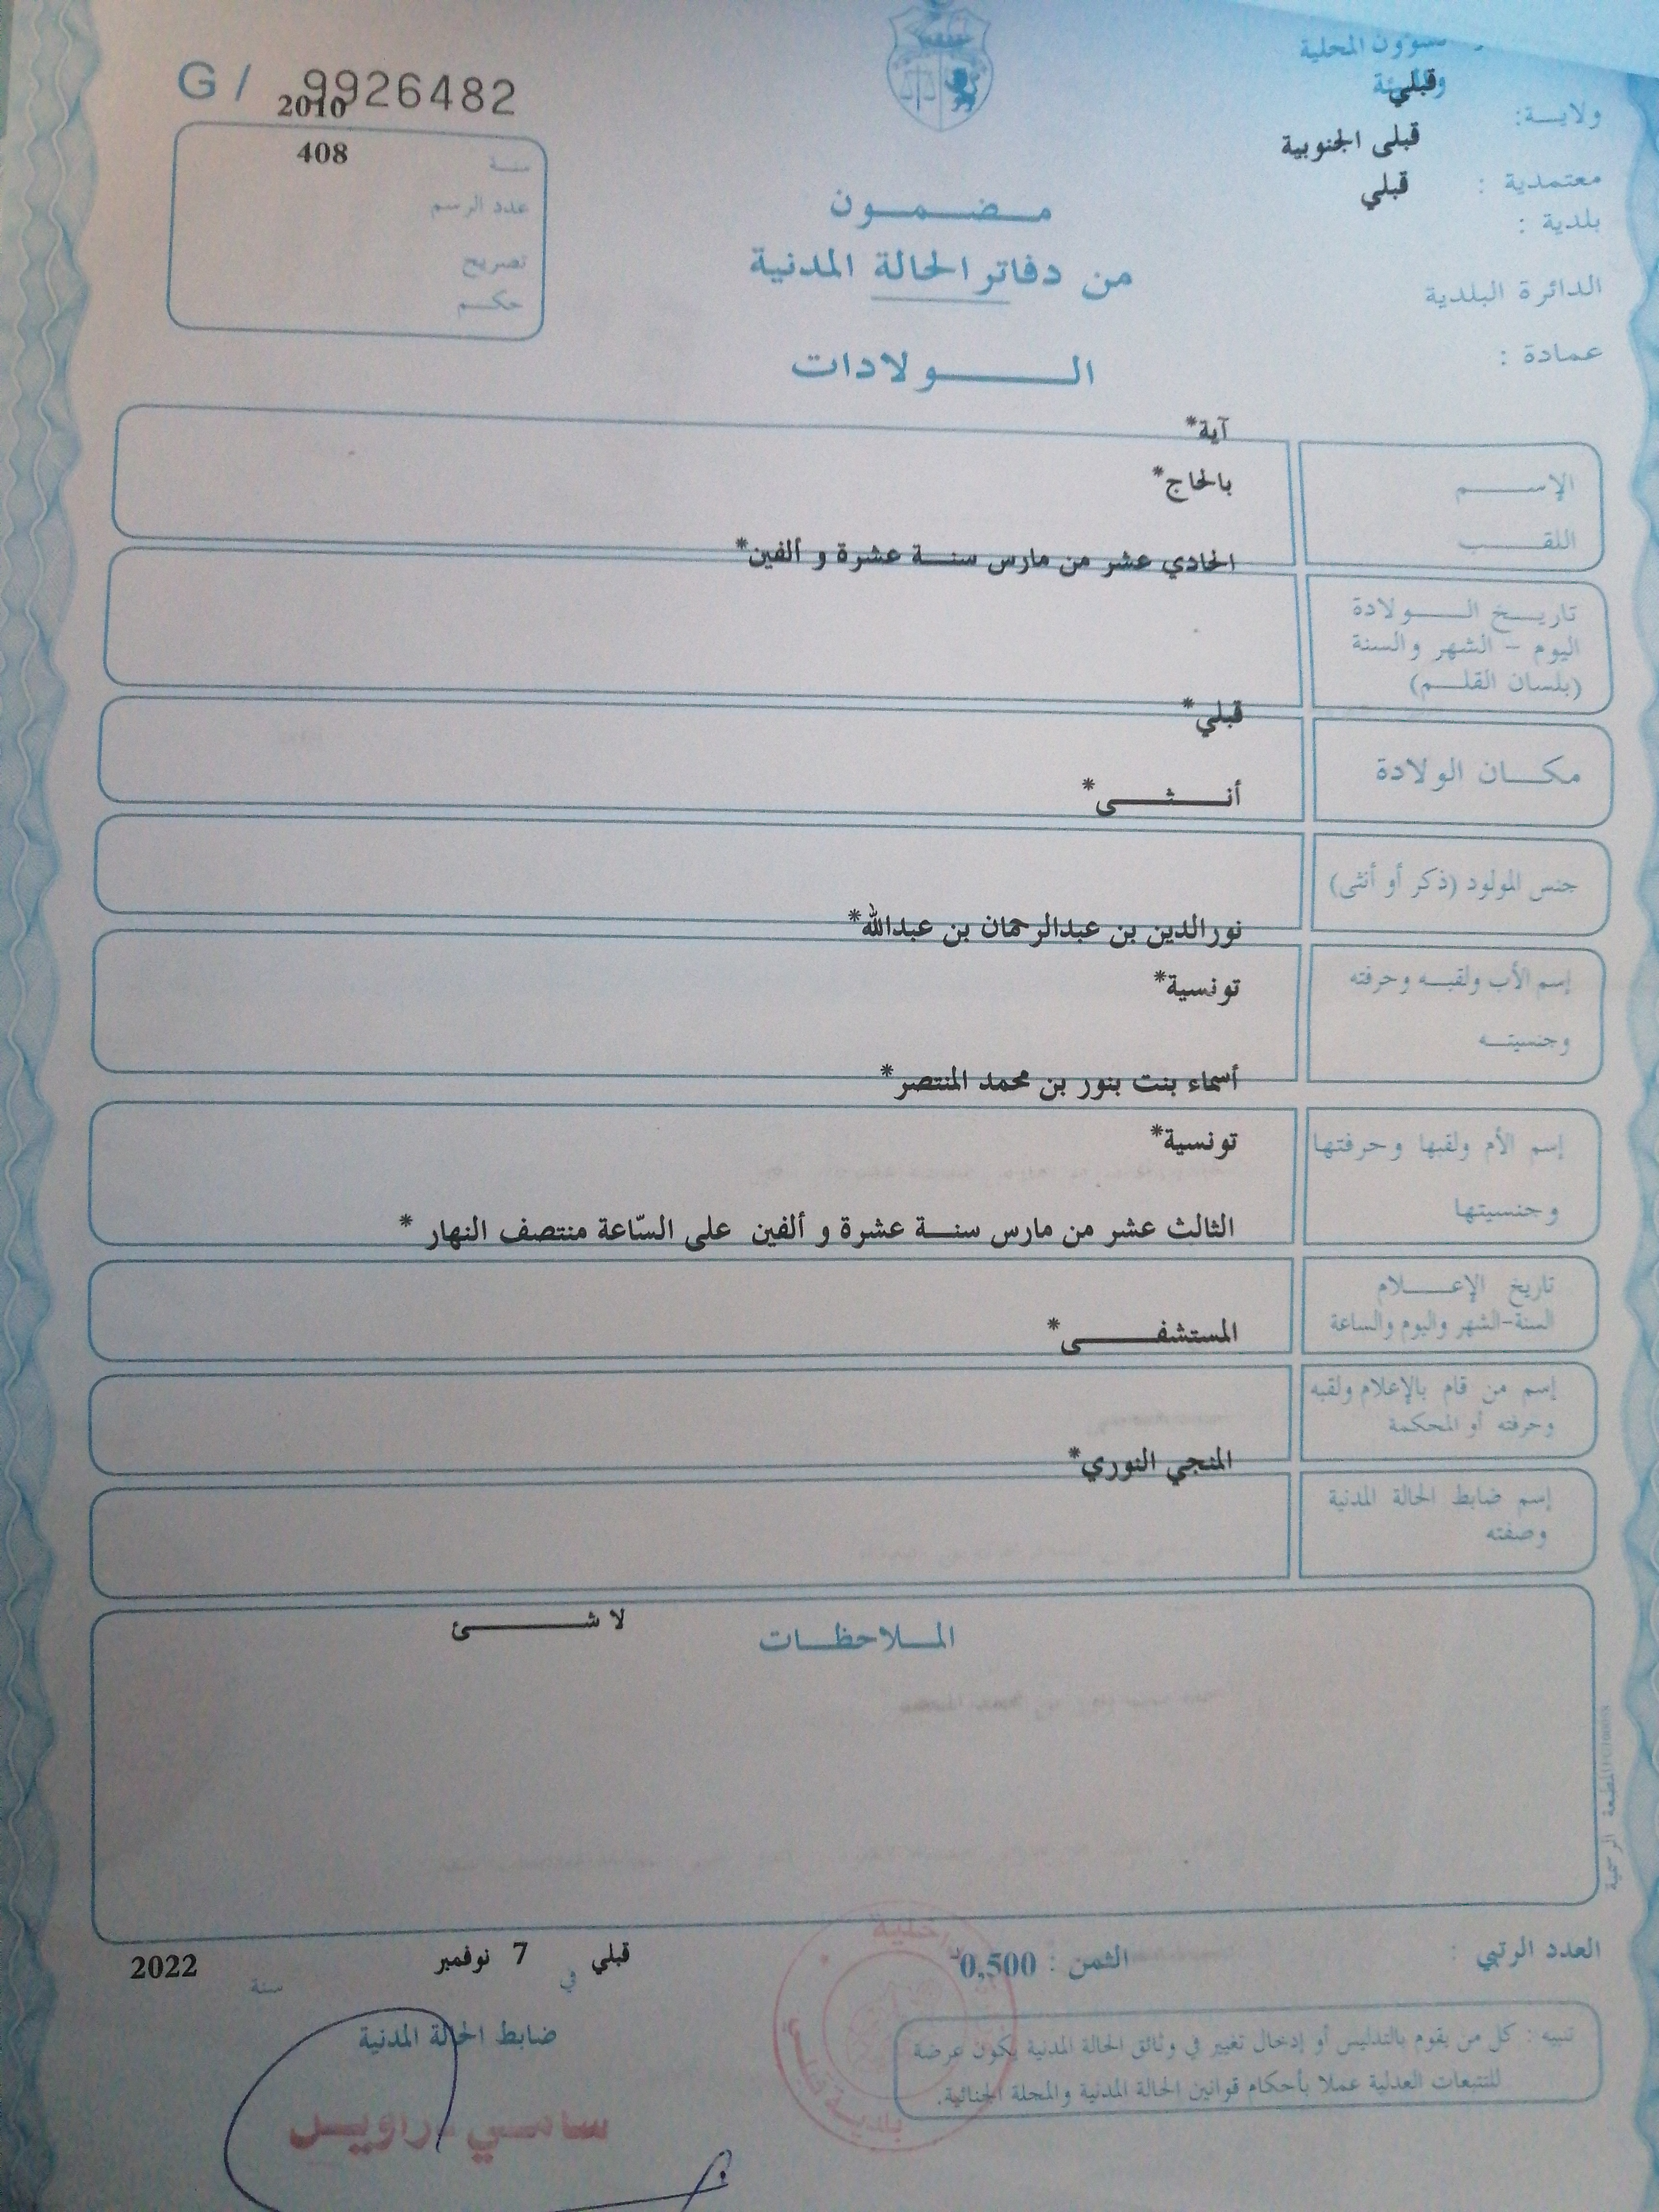 G / 9926482
2010
408
سنة
عدد الرسم
تصريح
حكم
المحلية
قبلي
ولاية:
قبلى الجنوبية
معتمدية :
قبلي
بلدية :
الدائرة البلدية
عمادة :
مضمون
من دفاتر الحالة المدنية
الولادات
آية*
الإسم
بالحاج*
اللقب
الحادي عشر من مارس سنة عشرة و ألفين*
تاريخ الولادة
اليوم - الشهر والسنة
(بلسان القلم)
قبلي*
مكان الولادة
أنثى*
جنس المولود (ذكر أو أنثى)
نورالدين بن عبدالرحمان بن عبدالله*
إسم الأب ولقبه وحرفته
تونسية*
وجنسيته
أسماء بنت بنور بن محمد المنتصر*
إسم الأم ولقبها وحرفتها
تونسية*
وجنسيتها
الثالث عشر من مارس سنة عشرة و ألفين على السّاعة منتصف النهار *
تاريخ الإعلام
السنة-الشهر واليوم والساعة
المستشفى*
إسم من قام بالإعلام ولقبه
وحرفته أو المحكمة
المنجي النوري*
إسم ضابط الحالة المدنية
وصفته
لا شئ
الملاحظات
المطبعة الرسمية
العدد الرتبي :
الثمن : 0,500د
قبلي في 7 نوفمبر سنة 2022
ضابط الحالة المدنية
تنبيه : كل من يقوم بالتدليس أو إدخال تغيير في وثائق الحالة المدنية يكون عرضة
للتتبعات العدلية عملا بأحكام قوانين الحالة المدنية والمجلة الجنائية.
بلدية قبلي
سامي